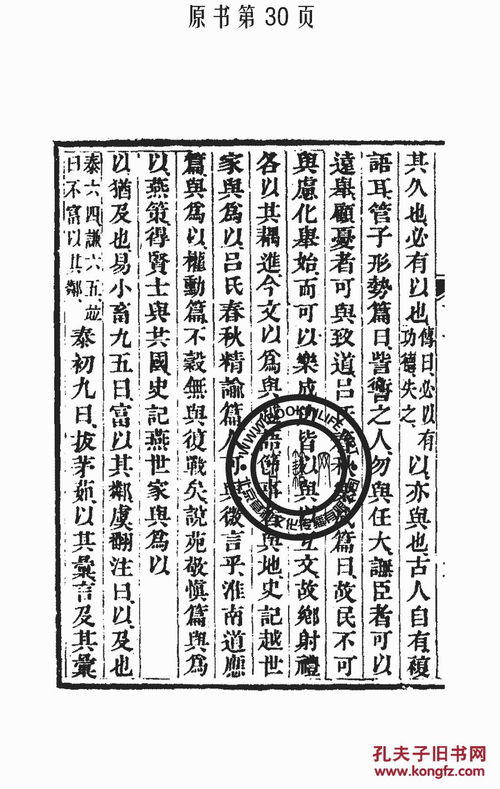 原书第30页
其久也必有以也傳曰必以有功德以亦與也古人自有複
語耳管子形勢篇曰訾讆之人勿與任大譕臣者可以
遠舉顧憂者可與致道呂氏春秋樂成篇曰故民不可
與慮化舉始而可以樂成功皆以與以互文故鄉射禮
各以其耦進今文以為與越語節事者與地史記越世
家與為以呂氏春秋精諭篇人可與微言乎淮南道應
篇與為以權勳篇不穀無與復戰矣說苑敬慎篇與為
以燕策得賢士與共國史記燕世家與為以
以猶及也易小畜九五曰富以其鄰虞翻注曰以及也
泰六四謙六五並曰不富以其鄰泰初九曰拔茅茹以其彙言及其彙
孔夫子旧书网
www.kongfz.com